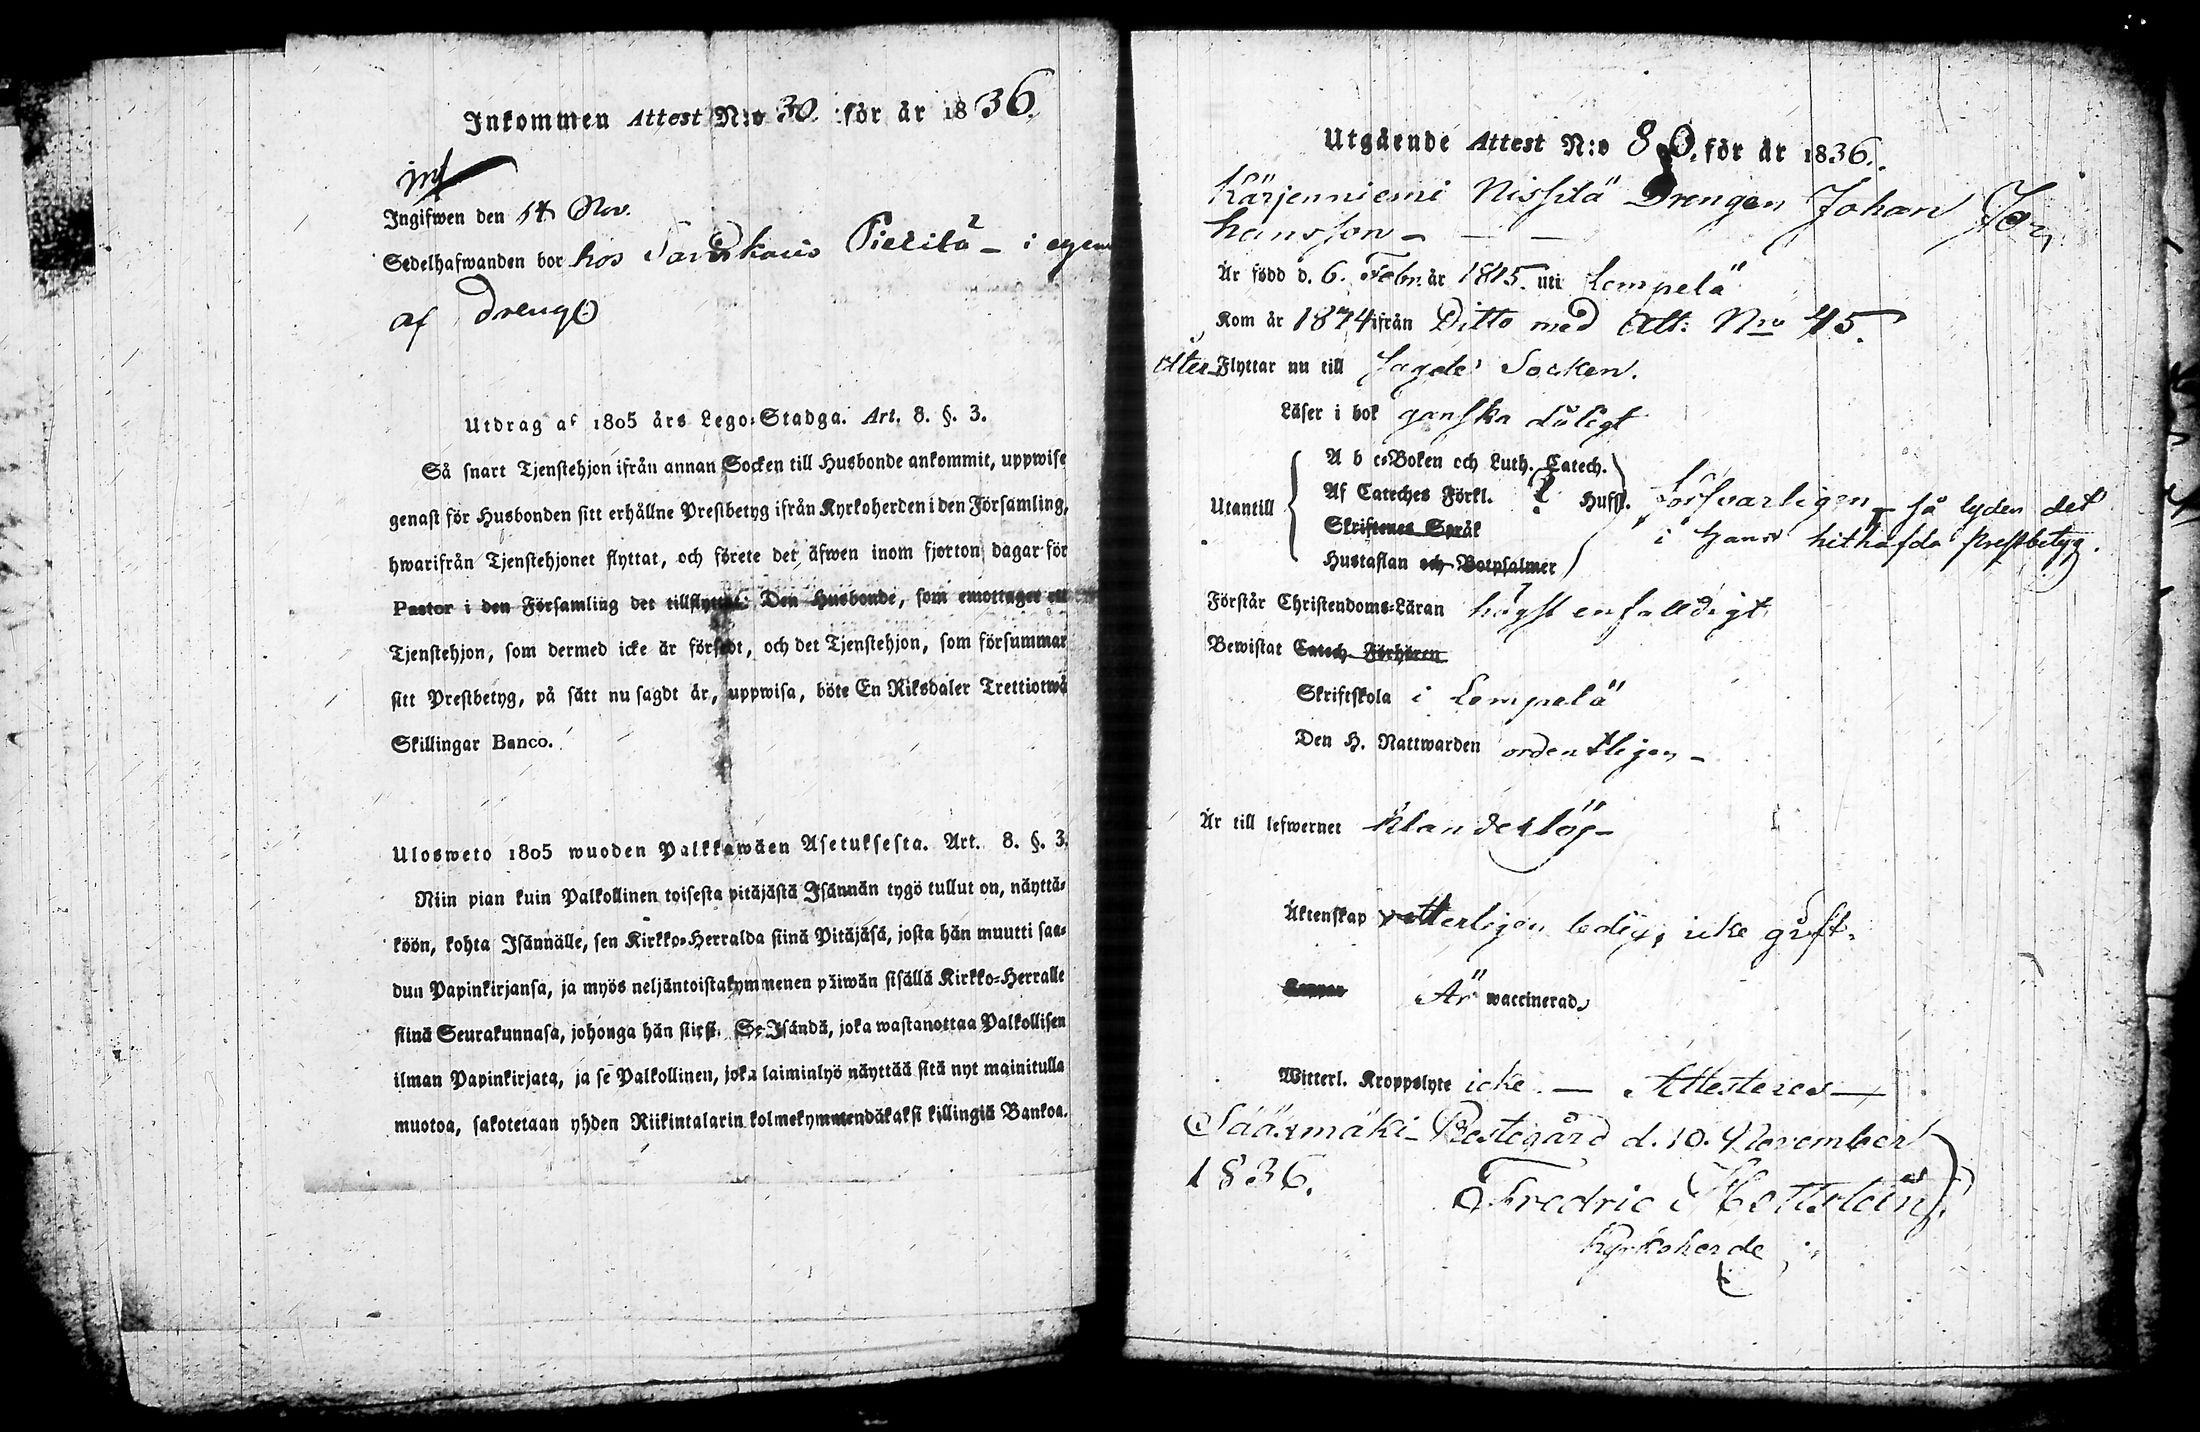 Inkommen Attest N:o 30. för år 1836.
Ingifwen den 14 Nov.
Sedelhafwanden bor hos Pietilä – i egen
af Dreng
Utdrag af 1805 års Lego-Stadga. Art. 8. §. 3.
Så snart Tjenstehjon ifrån annan Socken till Husbonde ankommit, uppwise
genast för Husbonden sitt erhållne Prestbetyg ifrån Kyrkoherden i den Församling,
hwarifrån Tjenstehjonet flyttat, och förete det äfwen inom fjorton dagar för
Pastor i den Församling det tillflyttat. Den Husbonde, som emottager ett
Tjenstehjon, som dermed icke är försedt, och det Tjenstehjon, som försummar
sitt Prestbetyg, på sätt nu sagdt är, uppwisa, böte En Riksdaler Trettiotwå
Skillingar Banco.
Ulosweto 1805 wuoden Palkkawäen Asetuksesta. Art. 8. §. 3.
Niin pian kuin Palkollinen toisesta pitäjästä Isännän tygö tullut on, näyttä-
köön, kohta Isännälle, sen Kirkko-Herralda siinä Pitäjäsä, josta hän muutti saa-
dun Papinkirjansa, ja myös neljäntoistakymmenen päiwän sisällä Kirkko-Herralle
siinä Seurakunnasa, johonga hän siirsi. Se Isändä, joka wastanottaa Palkollisen
ilman Papinkirjata, ja se Palkollinen, joka laiminlyö näyttää sitä nyt mainitulla
muotoa, sakotetaan yhden Riikintalarin kolmekymmendäkaksi killingiä Bankoa.
Utgående Attest N:o 80. för år 1836.
Kärjenniemi Nissilä Drengen Johan Jo-
hansson – – –
Är född d. 6. Febr. år 1815. uti Lempelä
Kom år 1874 ifrån Ditto med Att: Nro 45.
Åter Flyttar nu till sagde Socken.
Läser i bok ganska dåligt
Utantill
A b c-Boken och Luth. Catech.
Af Cateches Förkl. ? Hufst. Försvarligen – så lyder det
Skriftenes Språk i hans hithafda Prestbetyg.
Hustaflan och Botpsalmer
Förstår Christendoms-Läran högst enfalldigt
Bewistat Catech. Förhören
Skriftskola i Lempelä
Den H. Nattwarden ordentligen –
Är till lefwernet Klanderlös –
Äktenskap vetterligen ledig, icke gift.
Är waccinerad
Witterl. Kroppslyte icke. — Attesteres —
Sääxmäki Prestegård d. 10. November
1836. Fredric
Kyrkoherde